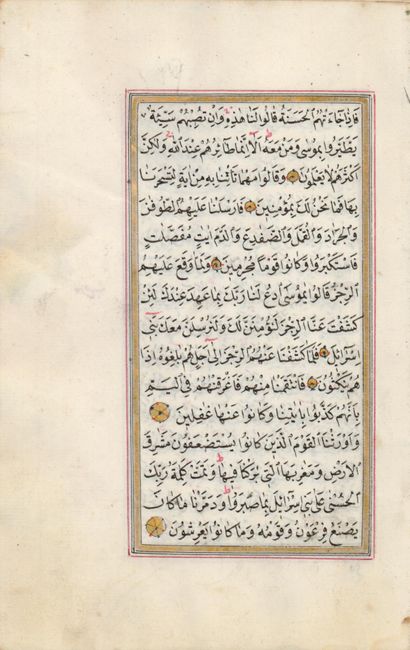 فَاِذَا جَاءَتْهُمُ الْحَسَنَةُ قَالُوا لَنَا هٰذِهٖ وَاِنْ تُصِبْهُمْ سَيِّئَةٌ
يَطَّيَّرُوا بِمُوسٰى وَمَنْ مَعَهُ اَلَا اِنَّمَا طَائِرُهُمْ عِنْدَ اللّٰهِ وَلٰكِنَّ
اَكْثَرَهُمْ لَا يَعْلَمُونَ وَقَالُوا مَهْمَا تَأْتِنَا بِهٖ مِنْ اٰيَةٍ لِتَسْحَرَنَا
بِهَا فَمَا نَحْنُ لَكَ بِمُؤْمِنِينَ فَاَرْسَلْنَا عَلَيْهِمُ الطُّوفَانَ
وَالْجَرَادَ وَالْقُمَّلَ وَالضَّفَادِعَ وَالدَّمَ اٰيَاتٍ مُفَصَّلَاتٍ
فَاسْتَكْبَرُوا وَكَانُوا قَوْمًا مُجْرِمِينَ وَلَمَّا وَقَعَ عَلَيْهِمُ
الرِّجْزُ قَالُوا يَا مُوسَى ادْعُ لَنَا رَبَّكَ بِمَا عَهِدَ عِنْدَكَ لَئِنْ
كَشَفْتَ عَنَّا الرِّجْزَ لَنُؤْمِنَنَّ لَكَ وَلَنُرْسِلَنَّ مَعَكَ بَنِى
اِسْرَائِلَ فَلَمَّا كَشَفْنَا عَنْهُمُ الرِّجْزَ اِلٰى اَجَلٍ هُمْ بَالِغُوهُ اِذَا
هُمْ يَنْكُثُونَ فَانْتَقَمْنَا مِنْهُمْ فَاَغْرَقْنَاهُمْ فِى الْيَمِّ
بِاَنَّهُمْ كَذَّبُوا بِاٰيَاتِنَا وَكَانُوا عَنْهَا غَافِلِينَ
وَاَوْرَثْنَا الْقَوْمَ الَّذِينَ كَانُوا يُسْتَضْعَفُونَ مَشَارِقَ
الْاَرْضِ وَمَغَارِبَهَا الَّتِى بَارَكْنَا فِيهَا وَتَمَّتْ كَلِمَةُ رَبِّكَ
الْحُسْنٰى عَلٰى بَنِى اِسْرَائِلَ بِمَا صَبَرُوا وَدَمَّرْنَا مَا كَانَ
يَصْنَعُ فِرْعَوْنُ وَقَوْمُهُ وَمَا كَانُوا يَعْرِشُونَ